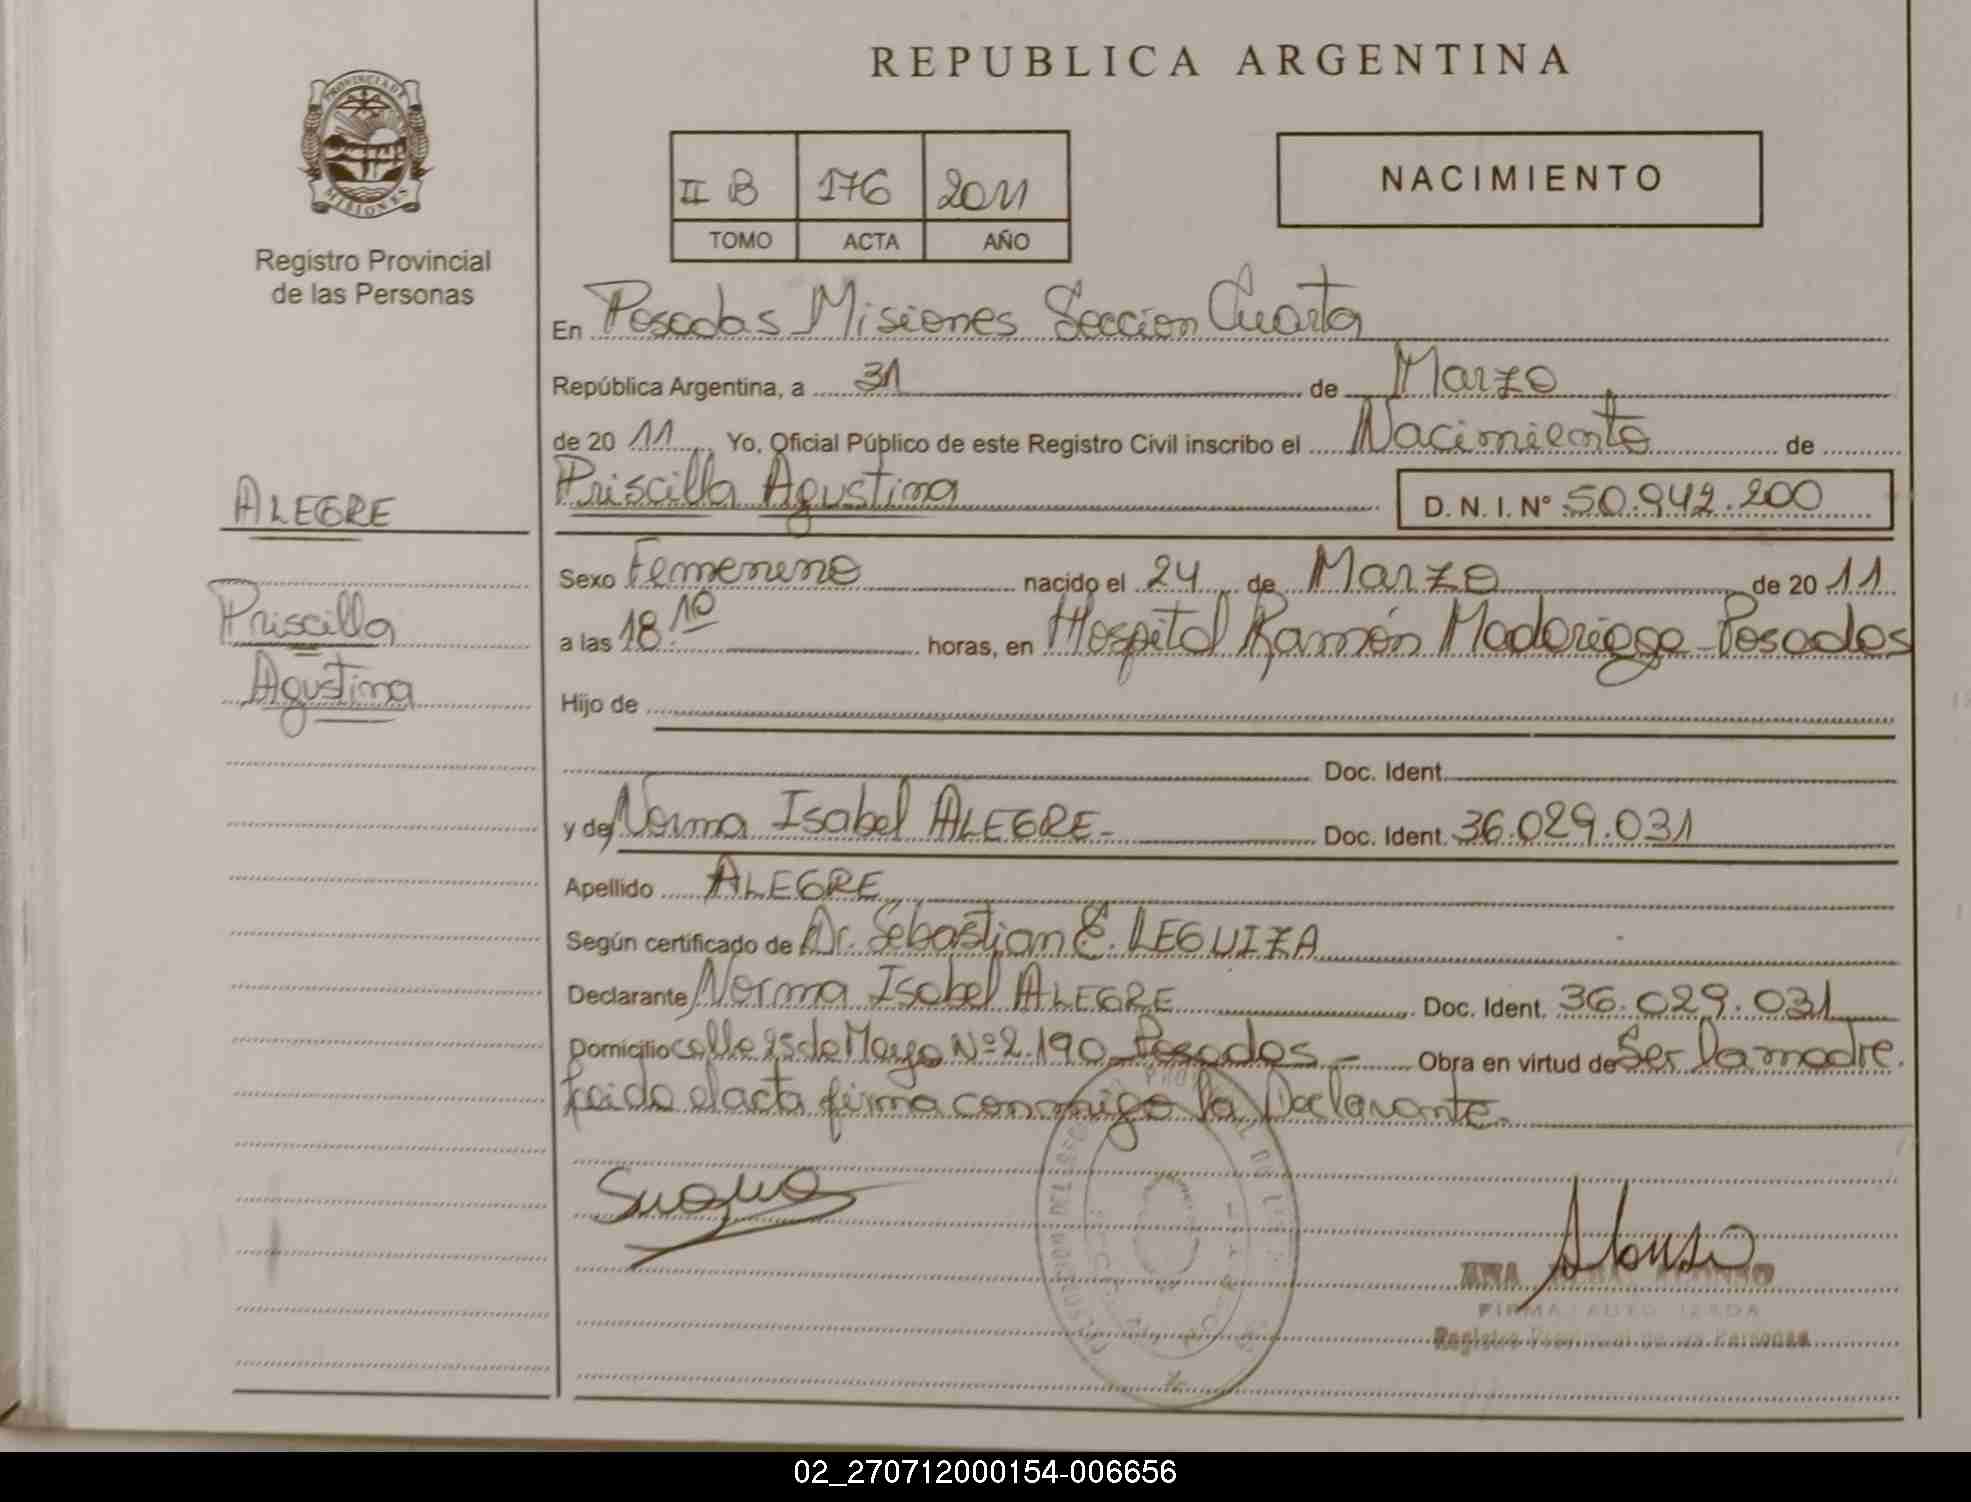 REPUBLICA ARGENTINA
PROVINCIA DE
MISIONES
Registro Provincial
de las Personas
II B 176 2011
TOMO ACTA AÑO
NACIMIENTO
En Posadas Misiones Seccion Cuarta
República Argentina, a 31 de Marzo
de 2011 Yo, Oficial Público de este Registro Civil inscribo el Nacimiento de
Priscilla Agustina D. N. I. N° 50.942.200
ALEGRE
Priscilla
Agustina
Sexo Femenino nacido el 24 de Marzo de 2011
a las 18:10 horas, en Hospital Ramón Madariaga - Posadas
Hijo de
Doc. Ident.
y de Norma Isabel ALEGRE - Doc. Ident. 36.029.031
Apellido ALEGRE
Según certificado de Dr. Sebastian E. LEGUIZA
Declarante Norma Isabel ALEGRE Doc. Ident. 36.029.031
Domicilio calle 25 de Mayo Nº 2.190 - Posadas - Obra en virtud de Ser la madre.
Leido el acta firma conmigo la Declarante.
ANA ALONSO
FIRMA AUTORIZADA
Registro Provincial de las Personas
02_270712000154-006656